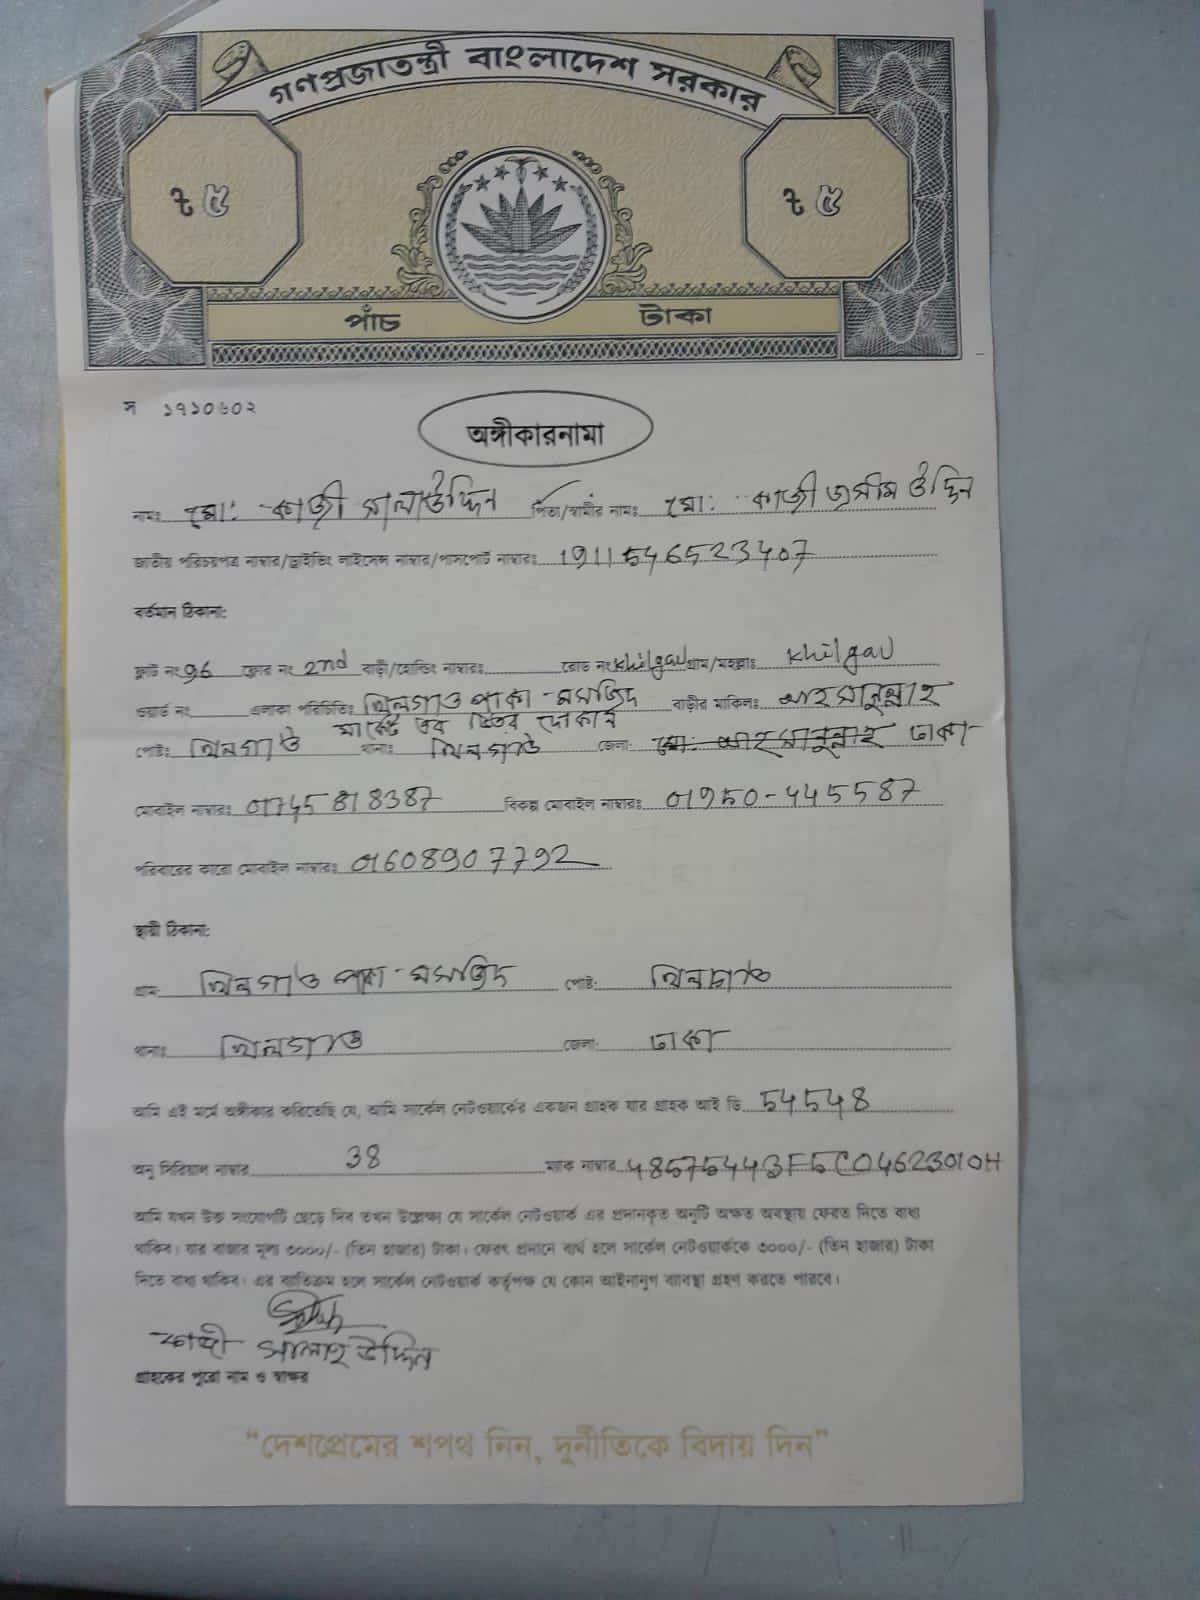 গণপ্রজাতন্ত্রী বাংলাদেশ সরকার
৳ ৫ ৳ ৫
পাঁচ টাকা
স ১৭১০৬০২
অঙ্গীকারনামা
নামঃ মো: কাজী সালাউদ্দিন পিতা/স্বামীর নামঃ মো: কাজী জসীম উদ্দিন
জাতীয় পরিচয়পত্র নাম্বার/ড্রাইভিং লাইসেন্স নাম্বার/পাসপোর্ট নাম্বারঃ 1911546523407
বর্তমান ঠিকানা:
ফ্লাট নং 96 ফ্লোর নং 2nd বাড়ী/হোল্ডিং নাম্বারঃ রোড নং khilgau গ্রাম/মহল্লাঃ khilgau
ওয়ার্ড নং এলাকা পরিচিতিঃ খিলগাও পাকা-মসজিদ বাড়ীর মালিকঃ আহসানুল্লাহ
মার্কেট এর ভিতর দোকান
পোষ্ট: খিলগাও থানা: খিলগাও জেলা: মো: আহসানুল্লাহ ঢাকা
মোবাইল নাম্বারঃ 01745818387 বিকল্প মোবাইল নাম্বারঃ 01950-445587
পরিবারের কারো মোবাইল নাম্বারঃ 01608907792
স্থায়ী ঠিকানা:
গ্রাম: খিলগাও পাকা-মসজিদ পোষ্ট: খিলগাও
থানাঃ খিলগাও জেলা: ঢাকা
আমি এই মর্মে অঙ্গীকার করিতেছি যে, আমি সার্কেল নেটওয়ার্কের একজন গ্রাহক যার গ্রাহক আই ডি 54548
অনু সিরিয়াল নাম্বার 38 ম্যাক নাম্বার 48575443F5C0462301OH
আমি যখন উক্ত সংযোগটি ছেড়ে দিব তখন উল্লেক্ষ্য যে সার্কেল নেটওয়ার্ক এর প্রদানকৃত অনুটি অক্ষত অবস্থায় ফেরত দিতে বাধ্য
থাকিব। যার বাজার মূল্য ৩০০০/- (তিন হাজার) টাকা। ফেরৎ প্রদানে ব্যর্থ হলে সার্কেল নেটওয়ার্ককে ৩০০০/- (তিন হাজার) টাকা
দিতে বাধ্য থাকিব। এর ব্যতিক্রম হলে সার্কেল নেটওয়ার্ক কর্তৃপক্ষ যে কোন আইনানুগ ব্যাবস্থা গ্রহণ করতে পারবে।
কাজী সালাহ উদ্দিন
গ্রাহকের পুরো নাম ও স্বাক্ষর
“দেশপ্রেমের শপথ নিন, দুর্নীতিকে বিদায় দিন”